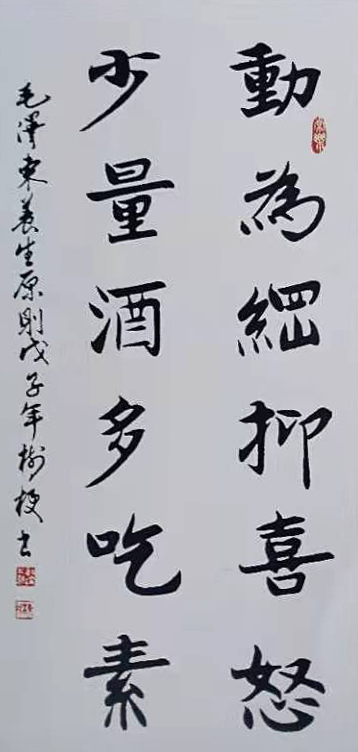 動為綱抑喜怒
少量酒多吃素
毛澤東養生原則戊子年樹梗书